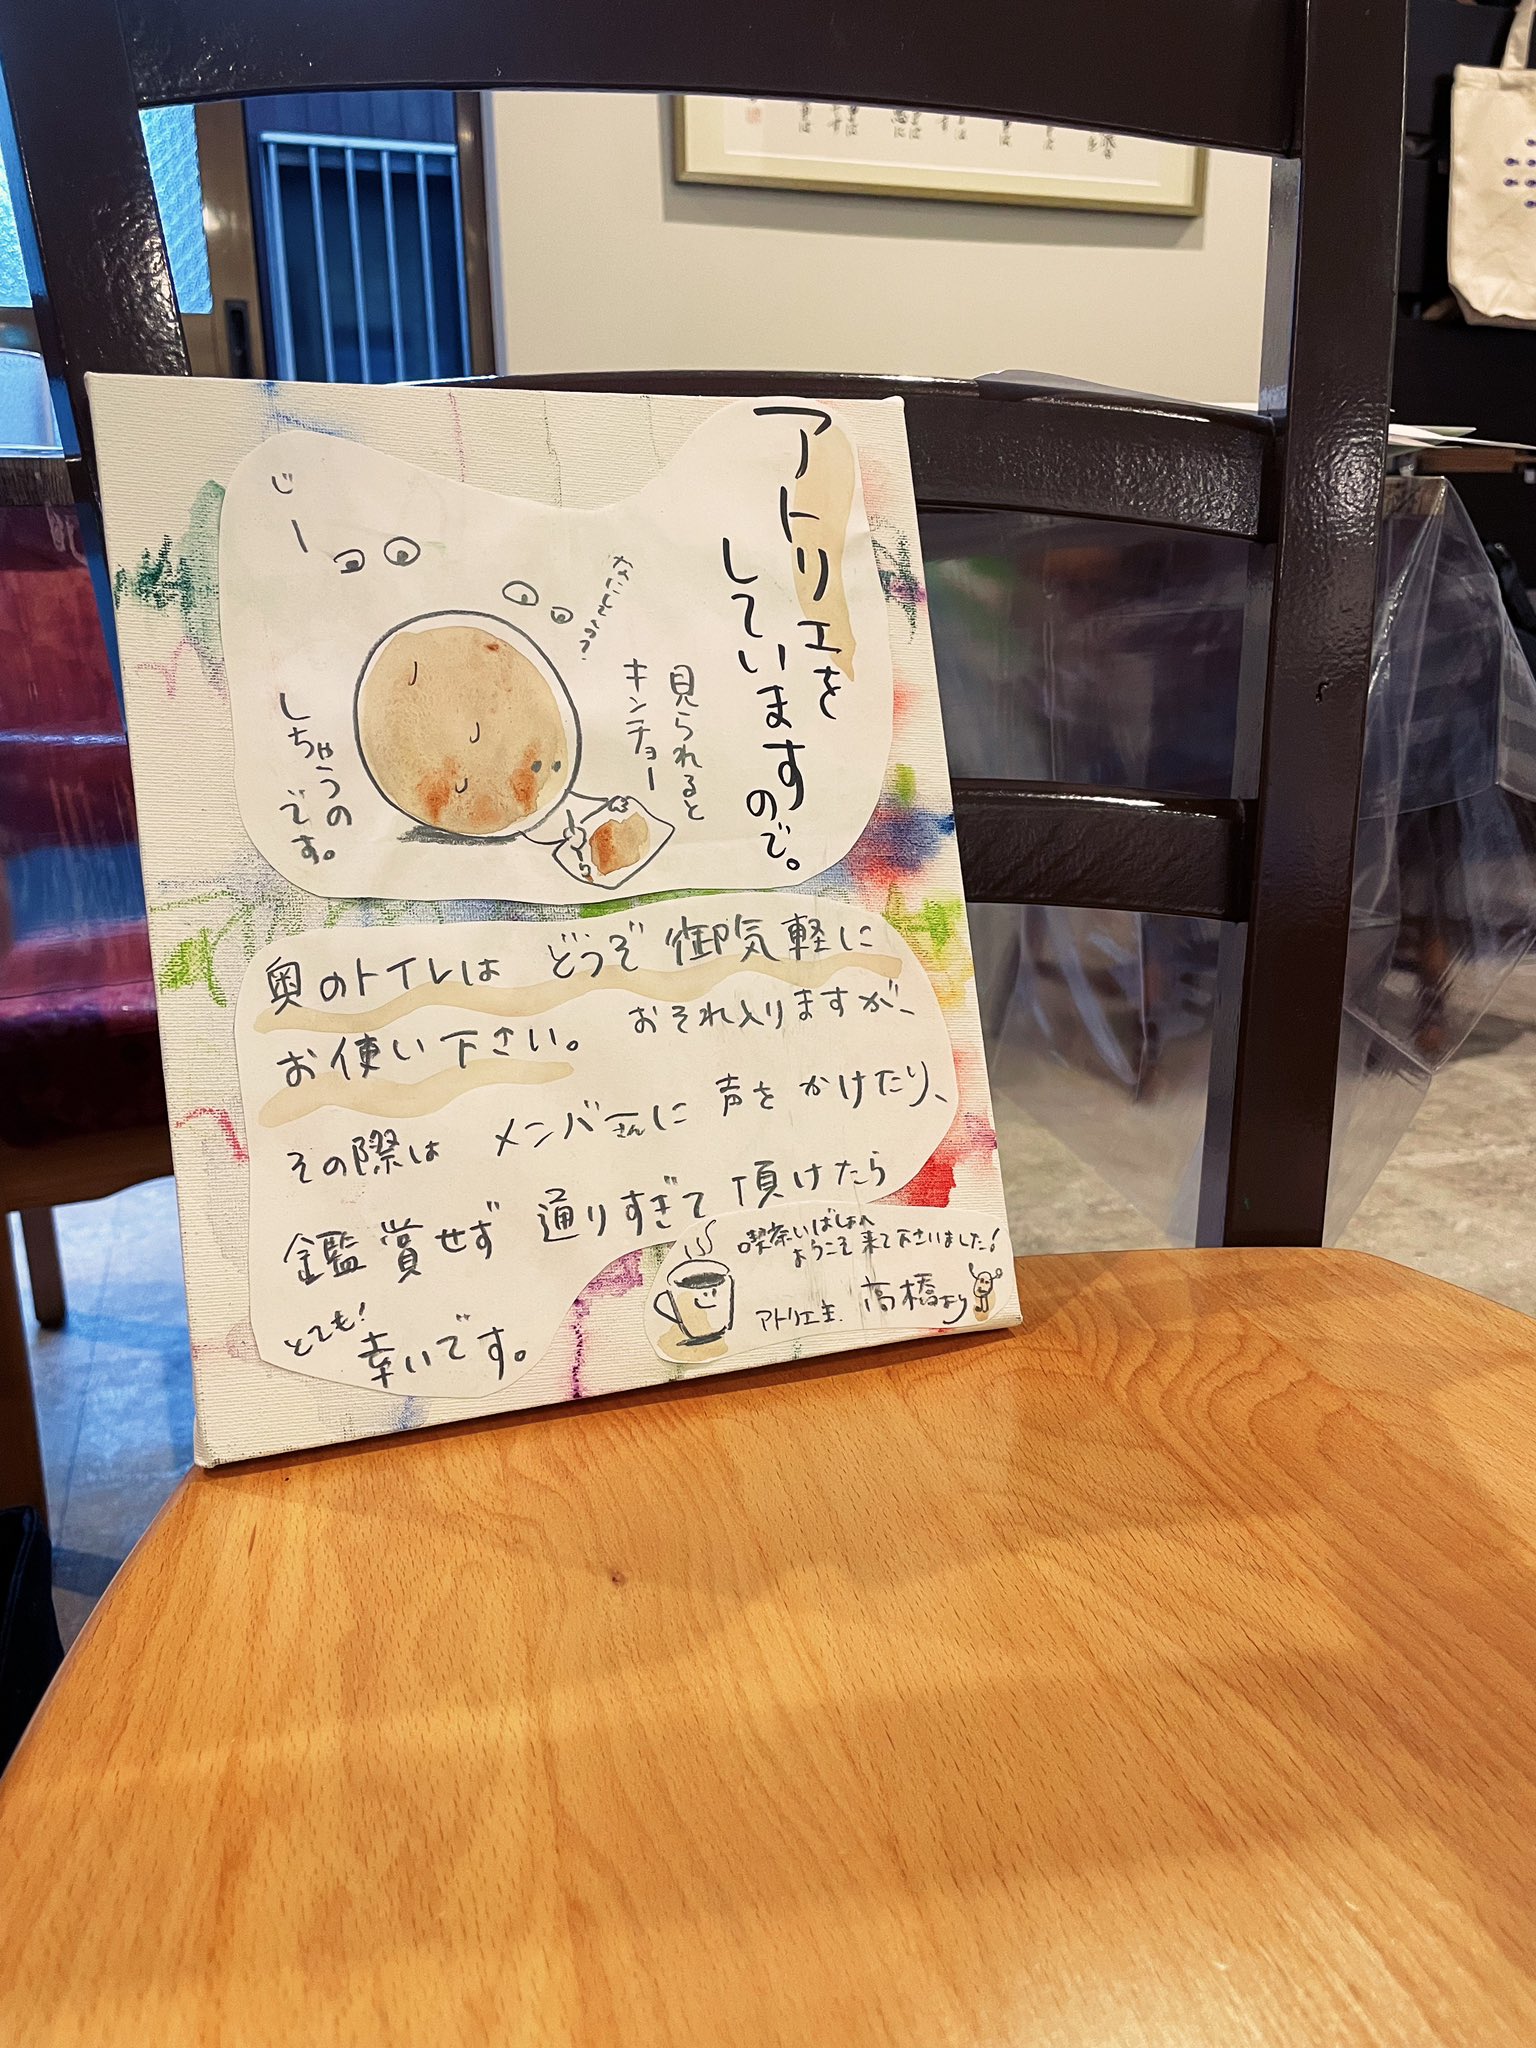 アトリエを
していますので。
見られると
キンチョー
しちゃうの
です。
なにしてるの?
じー
奥のトイレは どうぞ 御気軽に
お使い下さい。 おそれ入りますが、
その際は メンバーさんに 声を かけたり、
鑑賞せず 通りすぎて 頂けたら
とても! 幸いです。
喫茶いばしょへ
ようこそ 来て下さいました!
アトリエ主. 高橋より